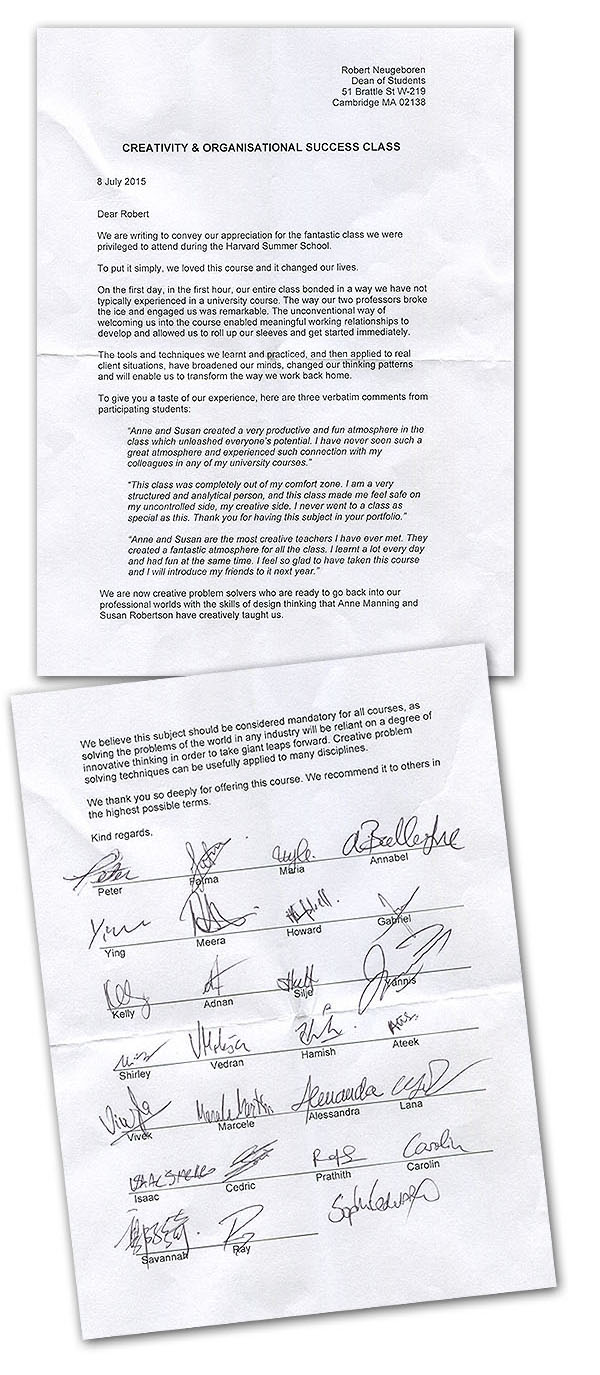 Robert Neugeboren
Dean of Students
51 Brattle St W-219
Cambridge MA 02138
CREATIVITY & ORGANISATIONAL SUCCESS CLASS
8 July 2015
Dear Robert
We are writing to convey our appreciation for the fantastic class we were
privileged to attend during the Harvard Summer School.
To put it simply, we loved this course and it changed our lives.
On the first day, in the first hour, our entire class bonded in a way we have not
typically experienced in a university course. The way our two professors broke
the ice and engaged us was remarkable. The unconventional way of
welcoming us into the course enabled meaningful working relationships to
develop and allowed us to roll up our sleeves and get started immediately.
The tools and techniques we learnt and practiced, and then applied to real
client situations, have broadened our minds, changed our thinking patterns
and will enable us to transform the way we work back home.
To give you a taste of our experience, here are three verbatim comments from
participating students:
"Anne and Susan created a very productive and fun atmosphere in the
class which unleashed everyone's potential. I have never seen such a
great atmosphere and experienced such connection with my
colleagues in any of my university courses."
"This class was completely out of my comfort zone. I am a very
structured and analytical person, and this class made me feel safe on
my uncontrolled side, my creative side. I never went to a class as
special as this. Thank you for having this subject in your portfolio."
"Anne and Susan are the most creative teachers I have ever met. They
created a fantastic atmosphere for all the class. I learnt a lot every day
and had fun at the same time. I feel so glad to have taken this course
and I will introduce my friends to it next year."
We are now creative problem solvers who are ready to go back into our
professional worlds with the skills of design thinking that Anne Manning and
Susan Robertson have creatively taught us.
We believe this subject should be considered mandatory for all courses, as
solving the problems of the world in any industry will be reliant on a degree of
innovative thinking in order to take giant leaps forward. Creative problem
solving techniques can be usefully applied to many disciplines.
We thank you so deeply for offering this course. We recommend it to others in
the highest possible terms.
Kind regards,
Peter
Peter Maria Annabel
Ying Meera Howard Gabriel
Kelly Adnan Silje Yannis
Shirley Vedran Hamish Ateek
Alessandra
Vivek Marcele Alessandra Lana
Carolin
Isaac Cedric Prathith Carolin
Savannah Ray